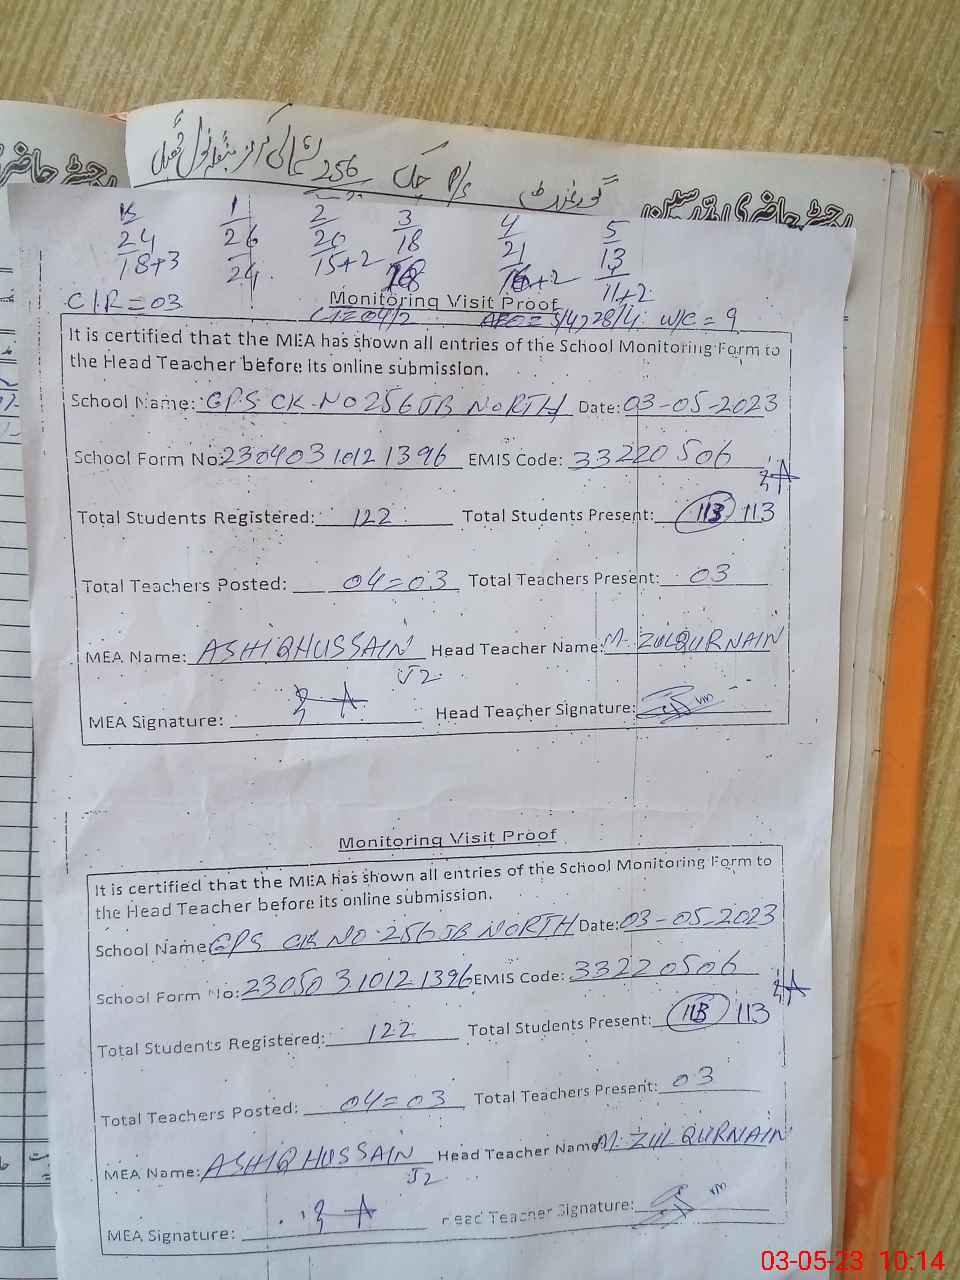 گورنمنٹ P/S چک 256
رجسٹر حاضری
K 1 2 3 4 5
24 26 20 18 21 13
18+3 24 15+2 18 16+2 11+2
C.I.R = 03
Monitoring Visit Proof
AEO = 5/4, 28/4 W/C = 9
It is certified that the MEA has shown all entries of the School Monitoring Form to
the Head Teacher before its online submission.
School Name: GPS CK NO 256 JB NORTH Date: 03-05-2023
School Form No: 230403 10121396 EMIS Code: 33220506
Total Students Registered: 122 Total Students Present: 113 113
Total Teachers Posted: 04=03 Total Teachers Present: 03
MEA Name: ASHIQ HUSSAIN Head Teacher Name: M. ZULQURNAIN
52
MEA Signature: Head Teacher Signature:
Monitoring Visit Proof
It is certified that the MEA has shown all entries of the School Monitoring Form to
the Head Teacher before its online submission.
School Name: GPS CK NO. 256 JB NORTH Date: 03-05-2023
School Form No: 230503 10121396 EMIS Code: 33220506
Total Students Registered: 122 Total Students Present: 113 113
Total Teachers Posted: 04=03 Total Teachers Present: 03
MEA Name: ASHIQ HUSSAIN Head Teacher Name: M. ZULQURNAIN
52
MEA Signature: Head Teacher Signature:
03-05-23 10:14